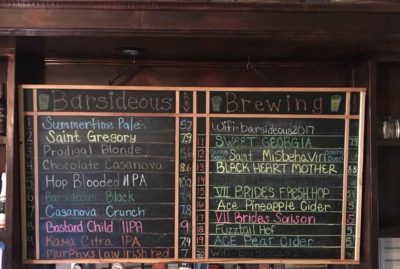 Barsideous
Brewing
Summertime Pale 5.7
2 Saint Gregory 7.9
3 Prodigal Blonde
4 Chocolate Casanova
5 Hop Blooded IIPA
6 Barsideous Black 7.9
7 Casanova Crunch 7.8
8 Bastard Child IIPA 9
9 Kama Citra IPA 7.9
10 Murphys Law Irish Red 7
Wifi-barsideous2017
11 SWEET GEORGIA
12 Saint Misbehavin
13 BLACK HEART MOTHER
14
15 VII BRIDES FRESH HOP
16 Ace Pineapple Cider
17 VII Brides Saison
18 Fuzztail Hef
19 ACE Pear Cider